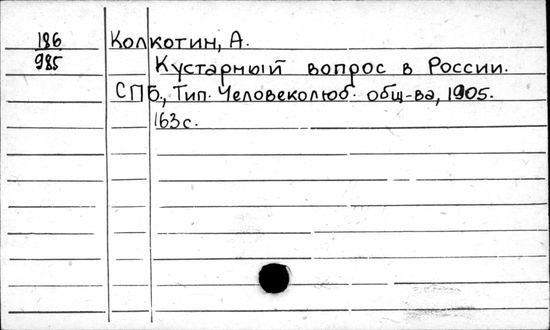 186
985
Колкотин, А.
Кустарный вопрос в России.
СПб., Тип. Человеколюб. общ-ва, 1905.
163 с.